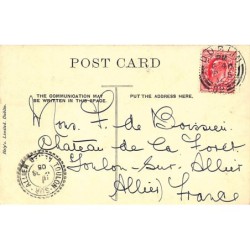 POST CARD
THE COMMUNICATION MAY
BE WRITTEN IN THIS SPACE.
PUT THE ADDRESS HERE.
Hely's, Limited, Dublin.
Mons. F. de Boissieu
Château de la Foret
Toulon-Sur-Allier
Allier) France